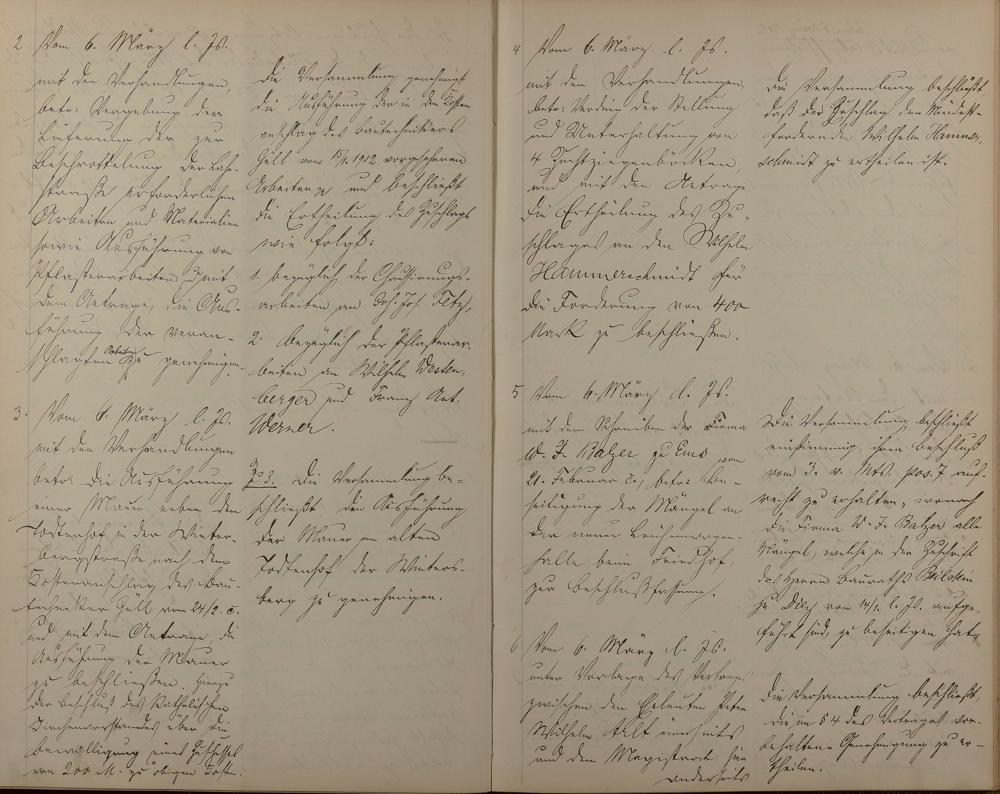 2 Vom 6. März l. Js.
mit den Verhandlungen,
betr: Vergebung der
Lieferung der zur
Beschrottelung der Lahn-
straße erforderlichen
Arbeiten und Materialien
sowie Ausführung von
Pflasterarbeiten u. mit
dem Antrage, die Aus-
führung der veran-
schlagten Arbeiten zu genehmigen.
Die Versammlung genehmigt
die Ausführung der in dem Kosten-
anschlag des Bautechnikers
Güll vom 1902 vorgesehenen
Arbeiten und beschließt
die Ertheilung des Zuschlags
wie folgt:
1. bezüglich der Chaussirungs-
arbeiten an Joh. Jos. Fetz,
2. bezüglich der Pflasterar-
beiten an Wilhelm Westen-
berger und Franz Ant.
Werner.
3. Vom 6. März l. Js.
mit den Verhandlungen
betr: die Ausführung
einer Mauer neben dem
Todtenhof in der Winters-
bergstraße nach dem
Kostenanschlag des Bau-
techniker Güll vom 24/2. c.
und mit dem Antrage, die
Ausführung der Mauer
zu beschließen. Hierzu
der Beschluß des Katholischen
Kirchenvorstandes über die
Bewilligung eines Zuschusses
von 200 M. zu obigen Kosten.
Zu 3. Die Versammlung be-
schließt die Ausführung
der Mauer am alten
Todtenhof der Winters-
berg zu genehmigen.
4 Vom 6. März l. Js.
mit den Verhandlungen,
betr: Verding der Stellung
und Unterhaltung von
4 Zuchtziegenböcken,
und mit dem Antrage
die Ertheilung des Zu-
schlages an den Wilhelm
Hammerschmidt für
die Forderung von 400
Mark zu beschließen.
Die Versammlung beschließt
daß der Zuschlag dem Mindest-
fordernden Wilhelm Hammer-
schmidt zu ertheilen ist.
5 Vom 6. März l. Js.
mit dem Schreiben der Firma
W. F. Balzer zu Ems vom
21. Februar c., betr: Be-
seitigung der Mängel an
der neuen Leichenwagen-
halle beim Friedhof,
zur Beschlußfassung.
Die Versammlung beschließt
einstimmig, ihren Beschluß
vom 3. v. Mts. pos. 7 auf-
recht zu erhalten, wonach
die Firma W. F. Balzer alle
Mängel, welche in der Zuschrift
des Herrn Bauraths Beilstein
zu Diez vom l. Js. aufge-
führt sind, zu beseitigen hat.
6 Vom 6. März l. Js.
unter Vorlage des Vertrags
zwischen den Eheleuten Peter
Wilhelm Alt einerseits
und dem Magistrat hier
anderseits
Die Versammlung beschließt,
die im § 4 des Vertrages vor-
behaltene Genehmigung zu er-
theilen.